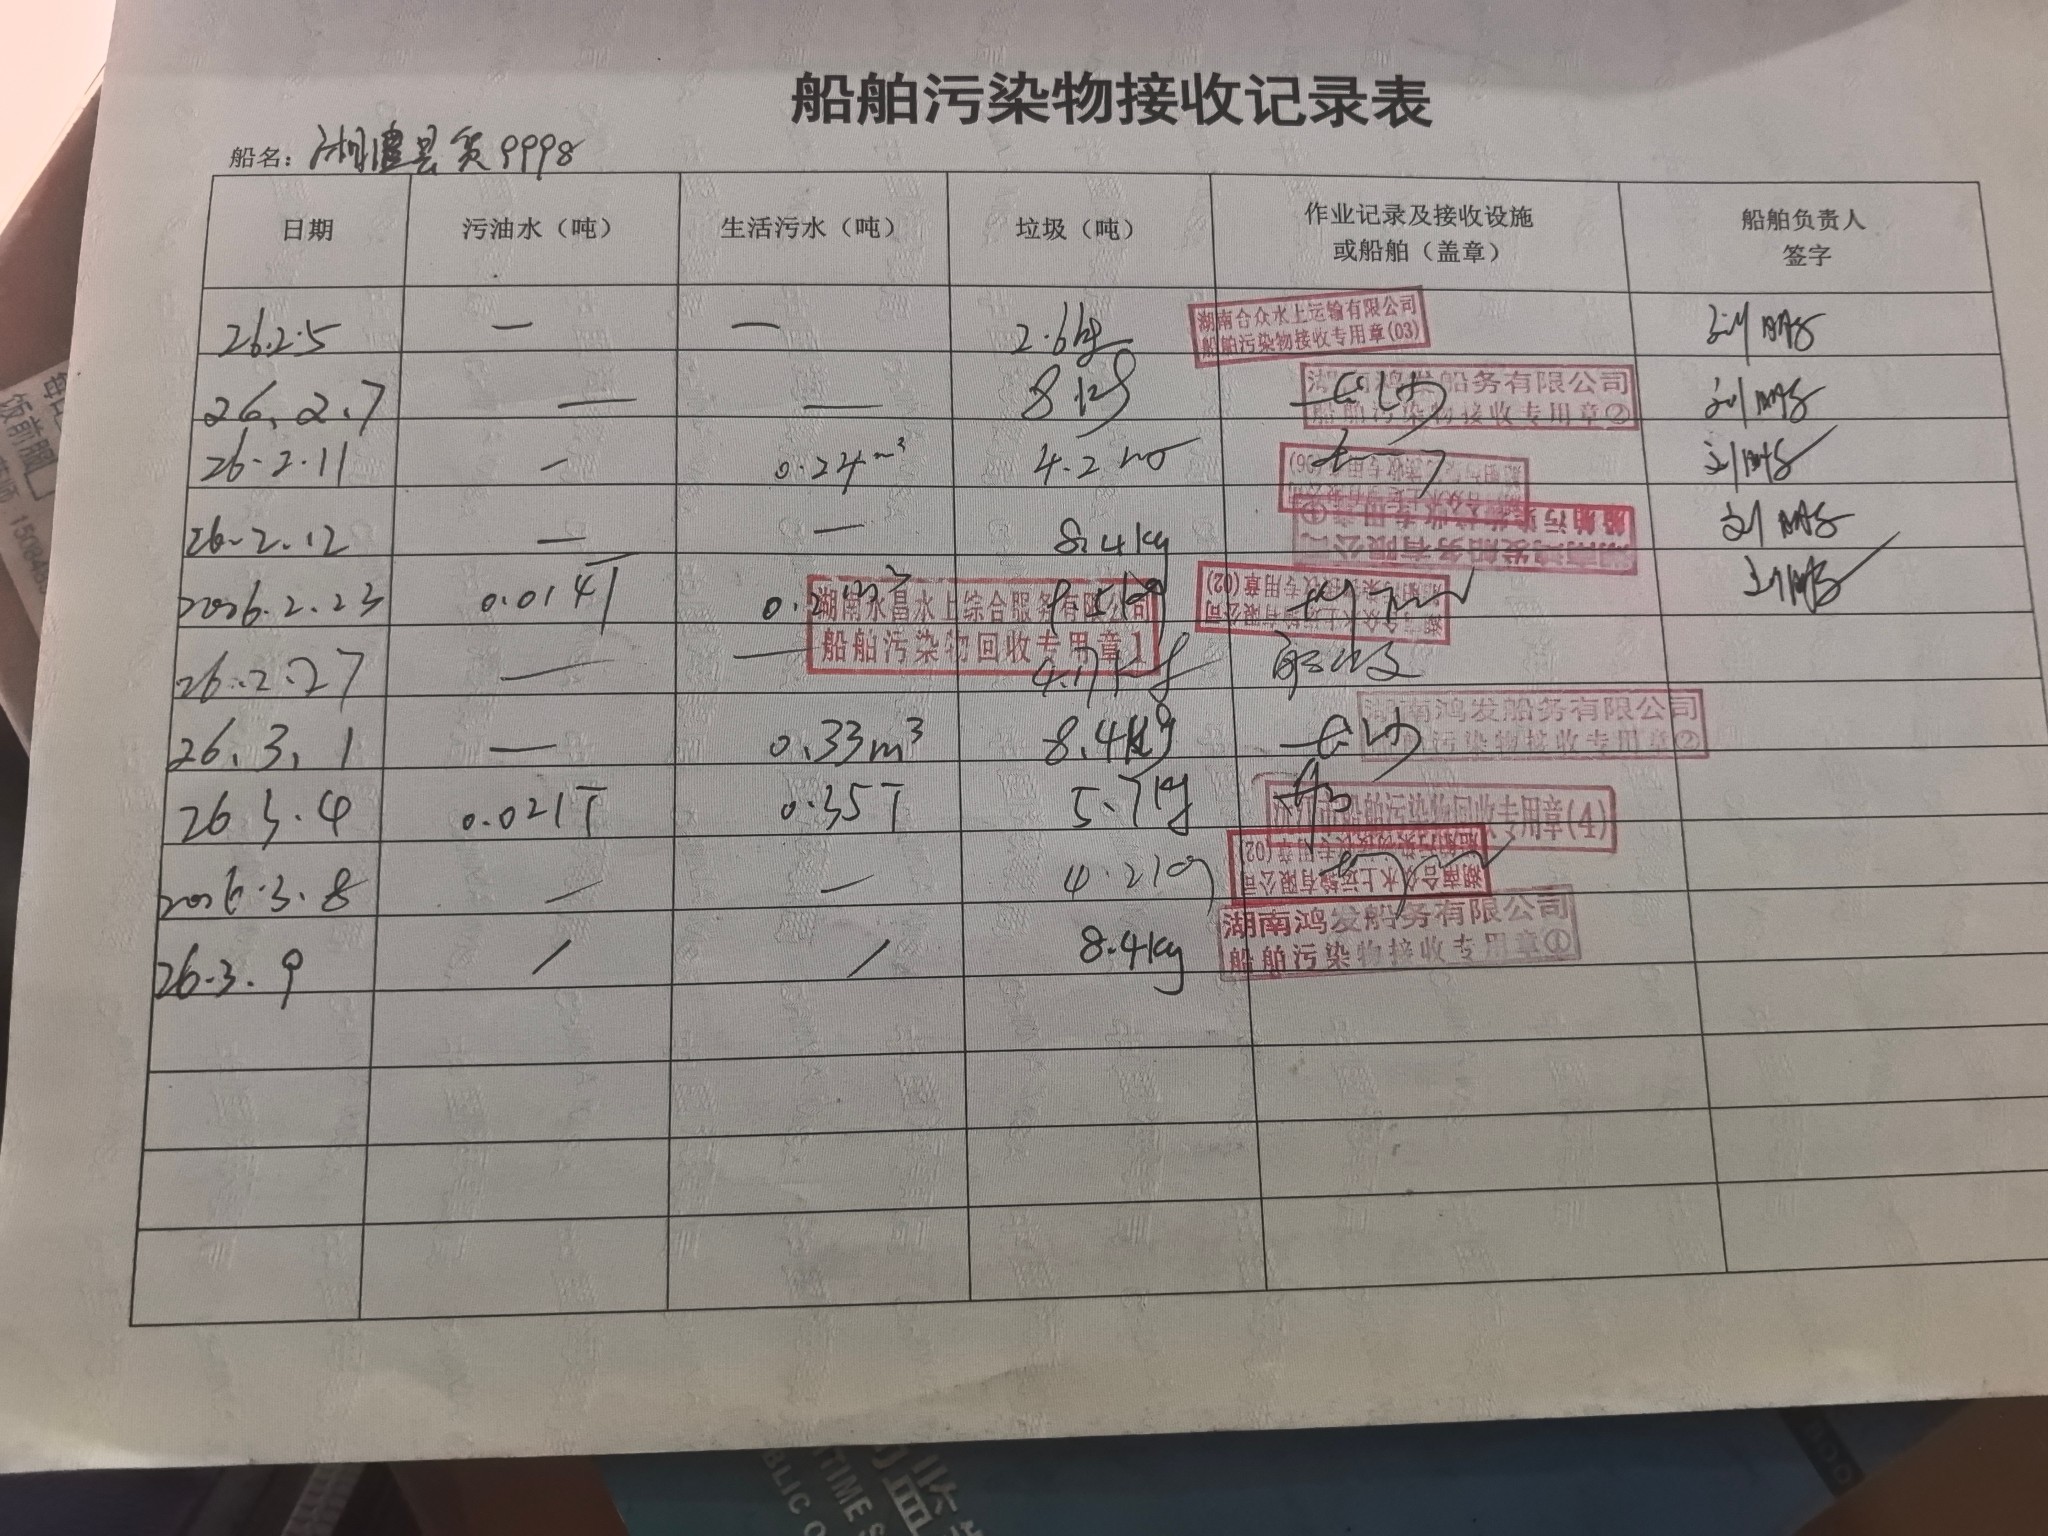 船舶污染物接收记录表
船名：湘澧县货9998
日期 污油水（吨） 生活污水（吨） 垃圾（吨） 作业记录及接收设施 船舶负责人
或船舶（盖章） 签字
26.2.5 — — 2.6kg 湖南合众水上运输有限公司
船舶污染物接收专用章(03)
26.2.7 — — 8kg 长沙 湖南鸿发船务有限公司
船舶污染物接收专用章②
26.2.11 — 0.24m³ 4.2
26.2.12 — — 8.4kg 湖南鸿发船务有限公司
船舶污染物接收专用章①
2026.2.23 0.014T 0.2m³ 湖南合众水上运输有限公司
船舶污染物接收专用章(02)
湖南永昌水上综合服务有限公司
船舶污染物回收专用章1
26.2.27 — — 4.7kg
26.3.1 — 0.33m³ 8.4kg 长沙 湖南鸿发船务有限公司
船舶污染物接收专用章②
26.3.4 0.021T 0.35T 5.7kg 船舶污染物回收专用章(4)
2026.3.8 — — 4.2kg 湖南合众水上运输有限公司
船舶污染物接收专用章(02)
26.3.9 / / 8.4kg 湖南鸿发船务有限公司
船舶污染物接收专用章①